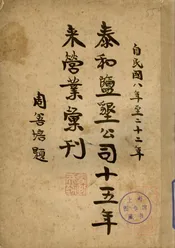 自民國八年至二十二年
泰和鹽墾公司十五年
来營業彙刊
周善培題